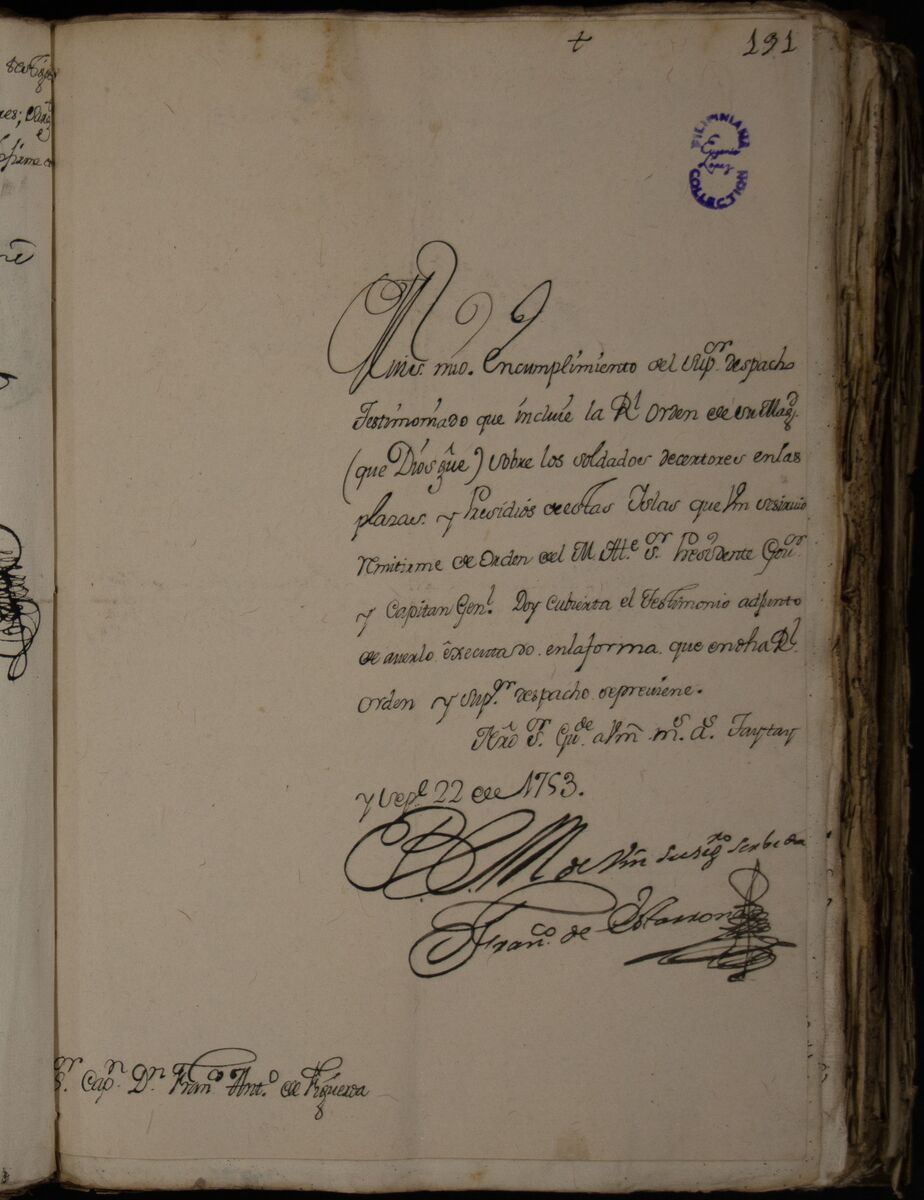 +
191
FILIPINIANA
Eugenio
Lopez
COLLECTION
Mui Sr. mio. En cumplimiento del Supor. despacho
Testimoniado que incluie la Rl Orden de su Magd.
(que Dios gûe) sobre los soldados decertores en las
plazas y Presidios de estas Islas que Vm se sirvio
remitirme de Orden del M. Ate. Sor. Presidente Govor.
y Capitan Genl. Doy cubierta el Testimonio adjunto
de averlo executado en la forma que en dha Rl.
Orden y Supor. despacho se previene.
Nro Sor. Gude. a Vm ms. as. Taytay
y Sepe. 22 de 1753.
B. L. M de Vm su sego serbidor
Franco. de Estarrona
Sor. Capn. Dn Franco Anto. de Figueroa